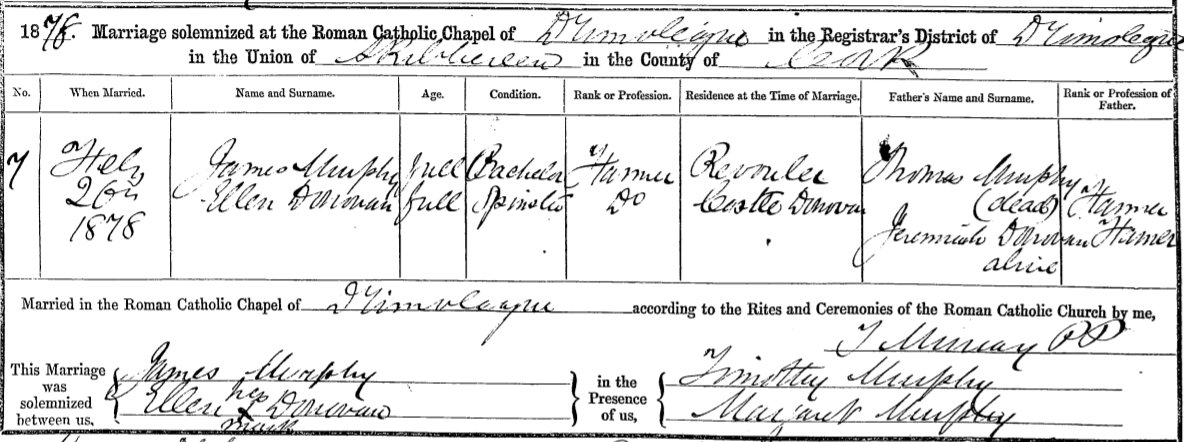 1878. Marriage solemnized at the Roman Catholic Chapel of Drimoleague in the Registrar's District of Drimoleague
in the Union of Skibbereen in the County of Cork
No. When Married. Name and Surname. Age. Condition. Rank or Profession. Residence at the Time of Marriage. Father's Name and Surname. Rank or Profession of Father.
7 Feby James Murphy full Bachelor Farmer Thomas Murphy Farmer
Ellen Donovan full Spinster Do Castle Donovan (dead)
1878 Jeremiah Donovan Farmer
alive
Married in the Roman Catholic Chapel of Drimoleague according to the Rites and Ceremonies of the Roman Catholic Church by me,
Murray PP
This Marriage was solemnized between us, James Murphy in the Presence of us, Timothy Murphy
Ellen her x Donovan Margaret Murphy
mark